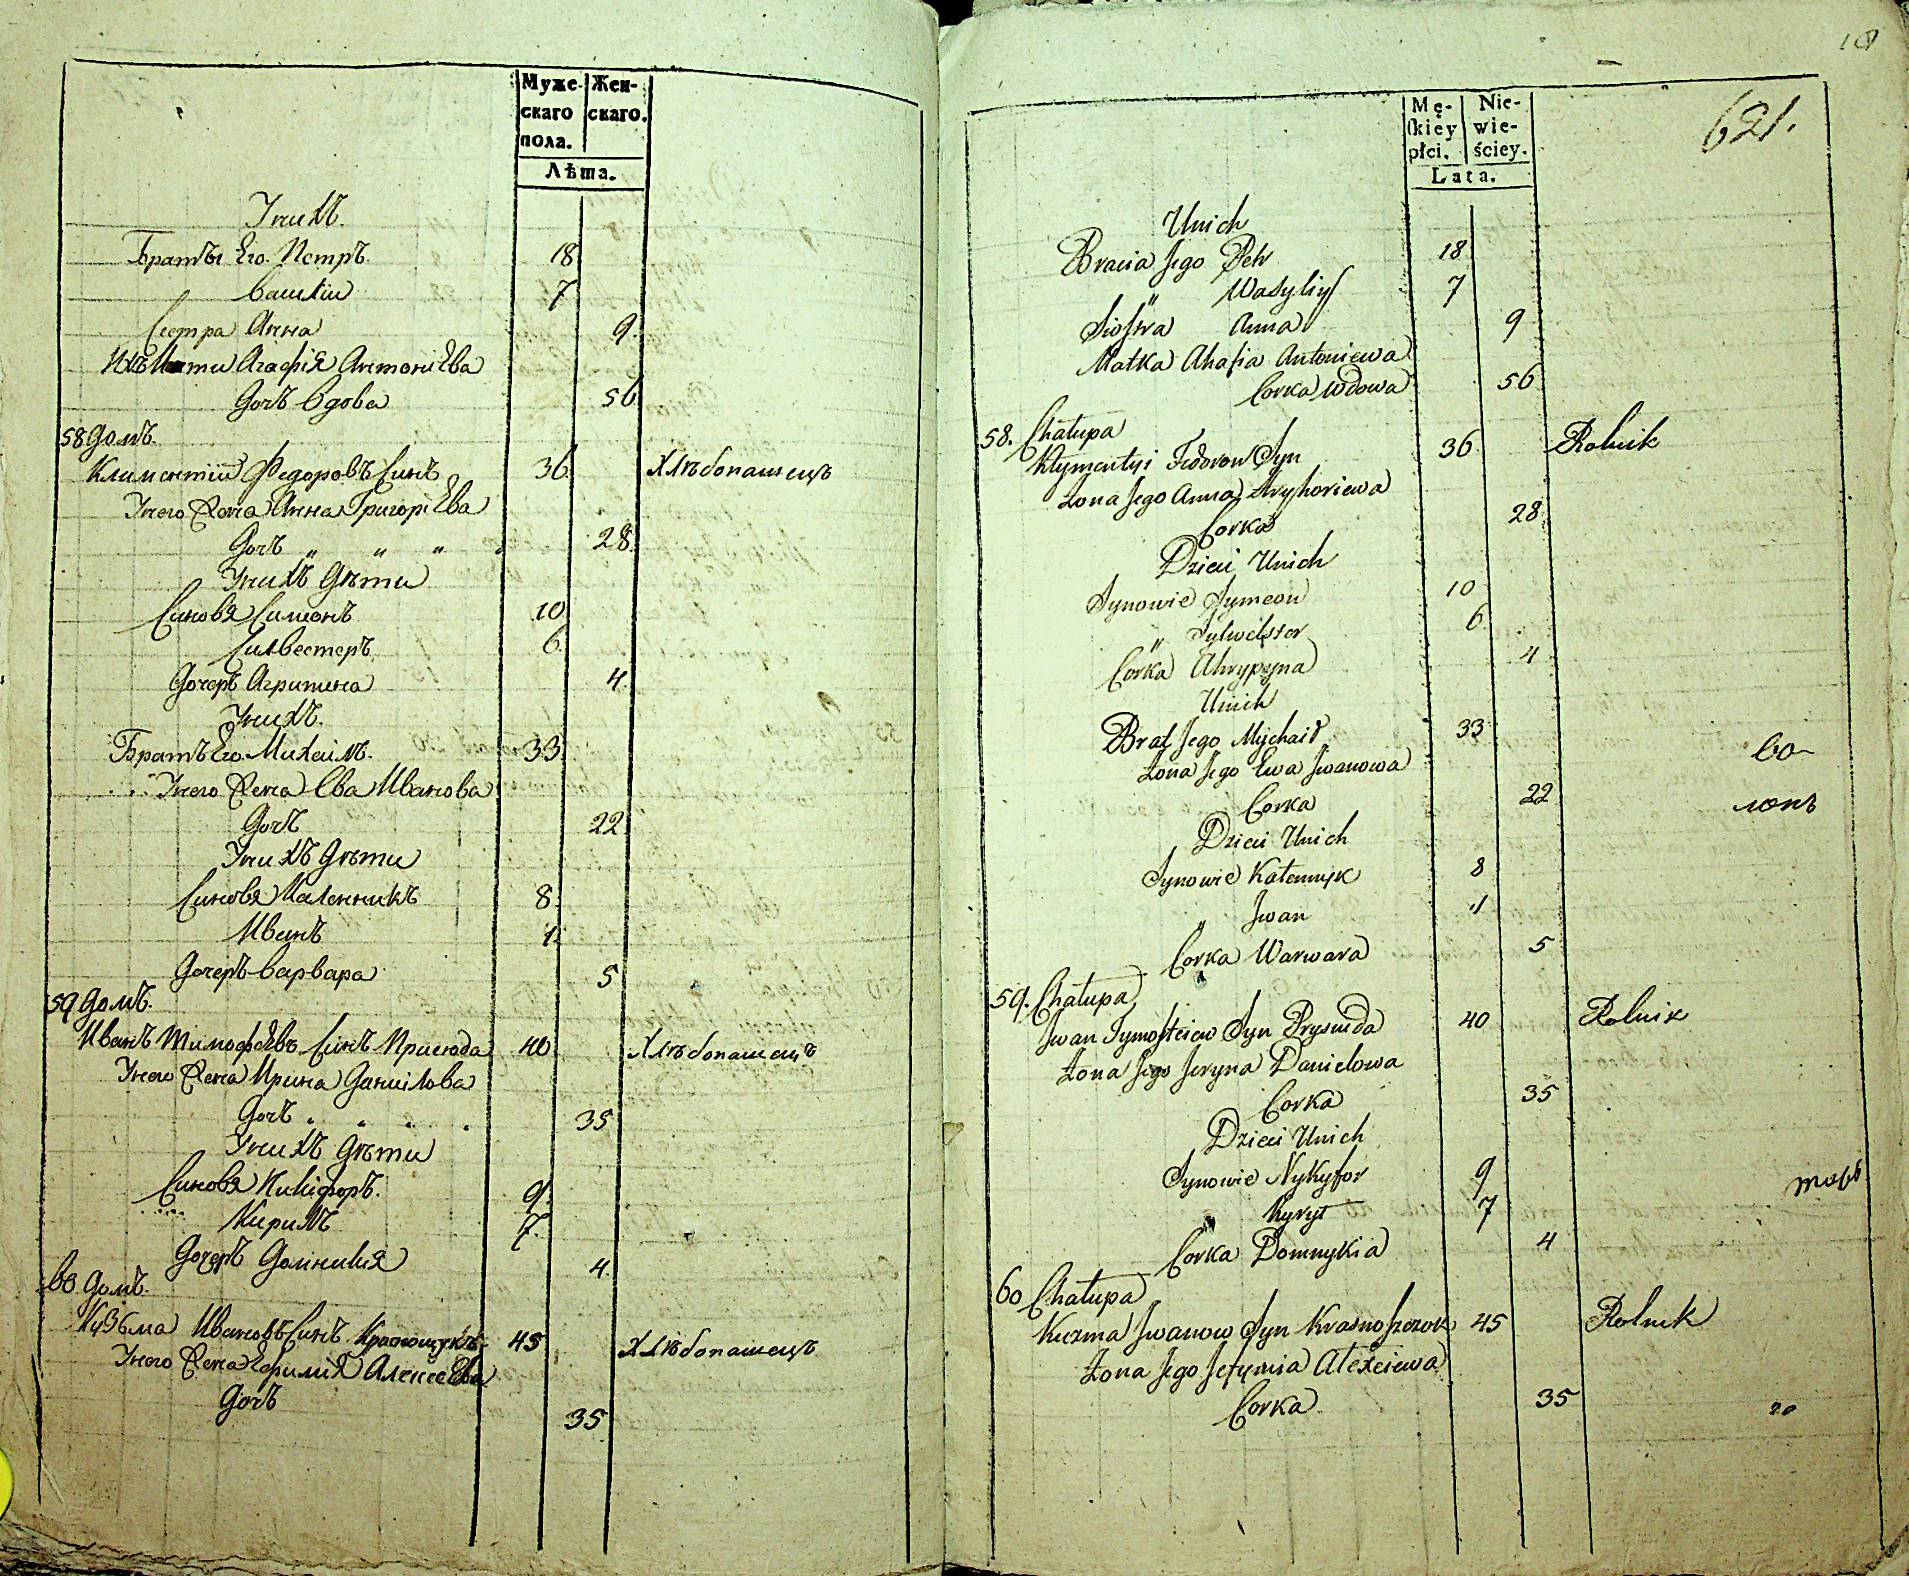 Муже-
скаго
пола.
Жен-
скаго.
Лѣта.
У них̾ъ
Братъы Его Петръ 18
Василій 7
Сестра Анна 9.
Ихъ Мати Агафія Антоніева
дочъ вдова 56
58 домъ.
Климентій Федоровъ Синъ 36. Хлѣбопашецъ
У него Жена Анна Григоріева
Дочъ „ „ „ 28.
У нихъ дѣти
Синовя Симеонъ 10
Силвестеръ 6.
Дочеръ Агрипина 4.
У нихъ.
Братъ Его Михаилъ. 33.
У него Жена Ева Иванова
Дочъ 22
У нихъ дѣти
Синовя Каленникъ 8.
Иванъ 1.
Дочеръ Варвара 5
59 домъ.
Иванъ Тимофѣевъ Синъ Присюда 40 Хлѣбопашецъ
У него Жена Ирина Данилова
Дочъ „ „ „ „ 35
У нихъ дѣти
Синовя Никифоръ. 9.
Кирилъ 7.
Дочеръ Домникия 4.
60 домъ.
Кузьма Ивановъ Синъ Краснощукъ 45 Хлѣбопашецъ
У него Жена Ефимія Алексеева
Дочъ 35
621.
Mę-
ſkiey
płci.
Nie-
wie-
ściey.
Lata.
Unich
Bracia Jego Petr 18
„ Wasyliy 7
Siostra Anna 9
Matka Ahafia Antoniewa
Corka wdowa 56
58. Chałupa
Kłymentyi Fedorow Syn 36 Rolnik
Żona Jego Anna Hryhoriewa
Corka 28
Dzieci Unich
Synowie Symeon 10
„ Sylwester 6
Corka Ahrypyna 4
Unich
Brat Jego Mychaił 33
Żona Jego Ewa Iwanowa
Corka 22
Dzieci Unich
Synowie Kałennyk 8
„ Iwan 1
Corka Warwara 5
59. Chałupa
Iwan Tymofteiew Syn Prysiuda 40 Rolnik
Żona Jego Jeryna Daniełowa
Corka 35
Dzieci Unich
Synowie Nykyfor 9
„ Kyrył 7
Corka Domnykia 4
60 Chałupa
Kuzma Iwanow Syn Krasnoszczok 45 Rolnik
Żona Jego Jefymia Ałexiewa
Corka 35